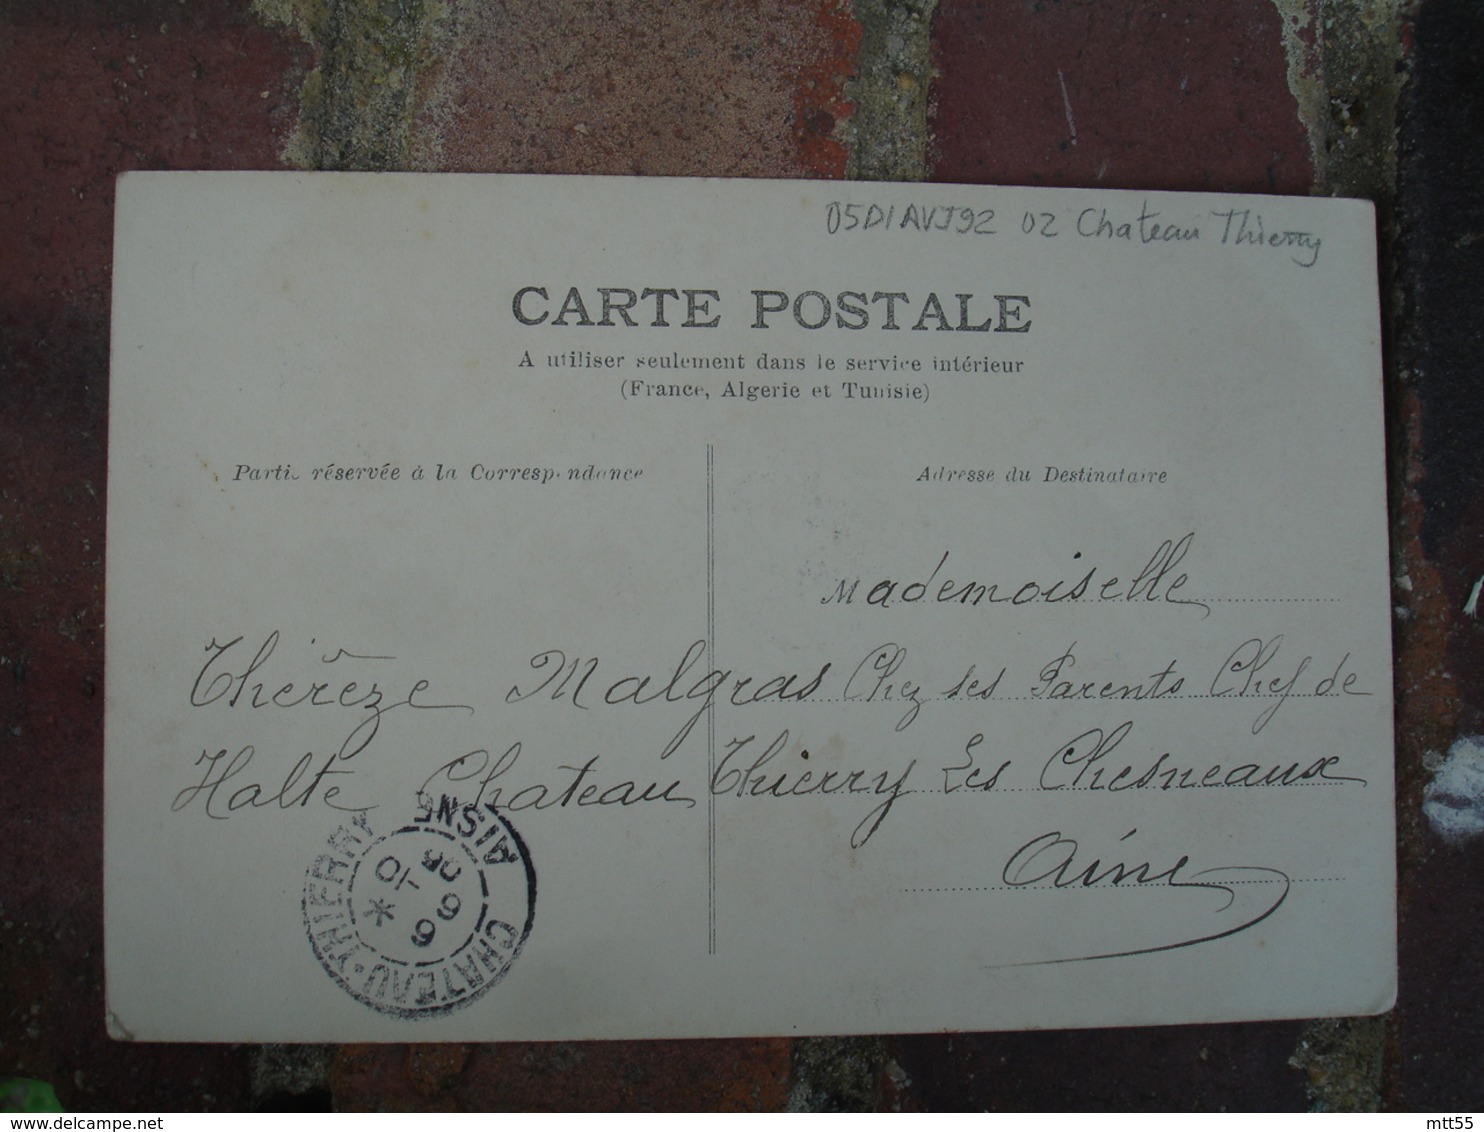 05D1AVJ92 02 Chateau Thierry
CARTE POSTALE
A utiliser seulement dans le service intérieur
(France, Algerie et Tunisie)
Partie réservée à la Correspondance
Adresse du Destinataire
Mademoiselle
Thérèze Malgras Chez ses Parents Chef de
Halte Chateau Thierry Les Chesneaux
Aine
CHATEAU-THIERRY AISNE
10 * 6 9 06
mtt55